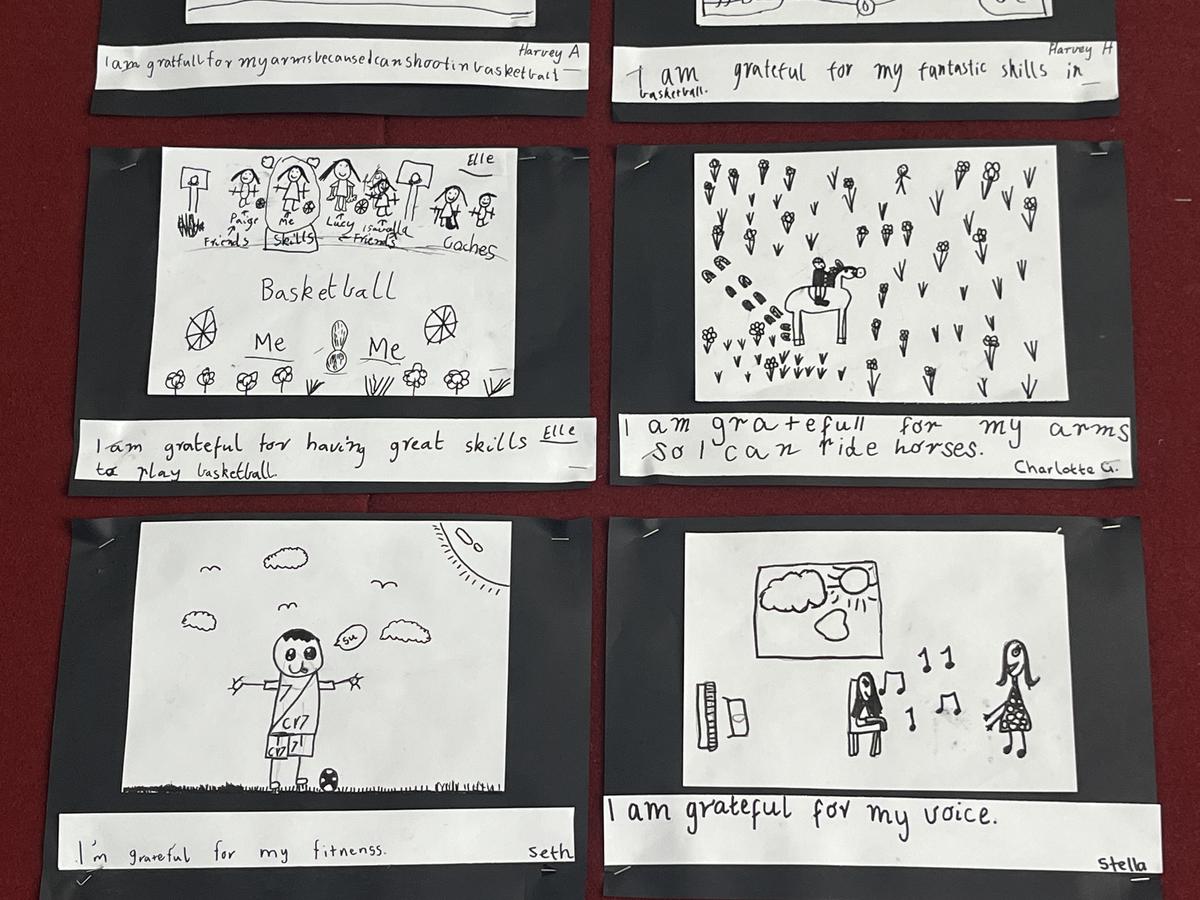 Harvey A
I am gratfull for my arms because I can shoot in basketball
Harvey H
I am grateful for my fantastic skills in
basketball.
Elle
Paige
Me
Lucy
Isavella
Friends
Skills
Friends
Coaches
Basketball
Me
Me
I am grateful for having great skills Elle
to play basketball.
I am gratefull for my arms
so I can ride horses.
Charlotte G.
su
7
Cr7
Cr7
7
I'm grateful for my fitnenss.
Seth
I am grateful for my voice.
Stella